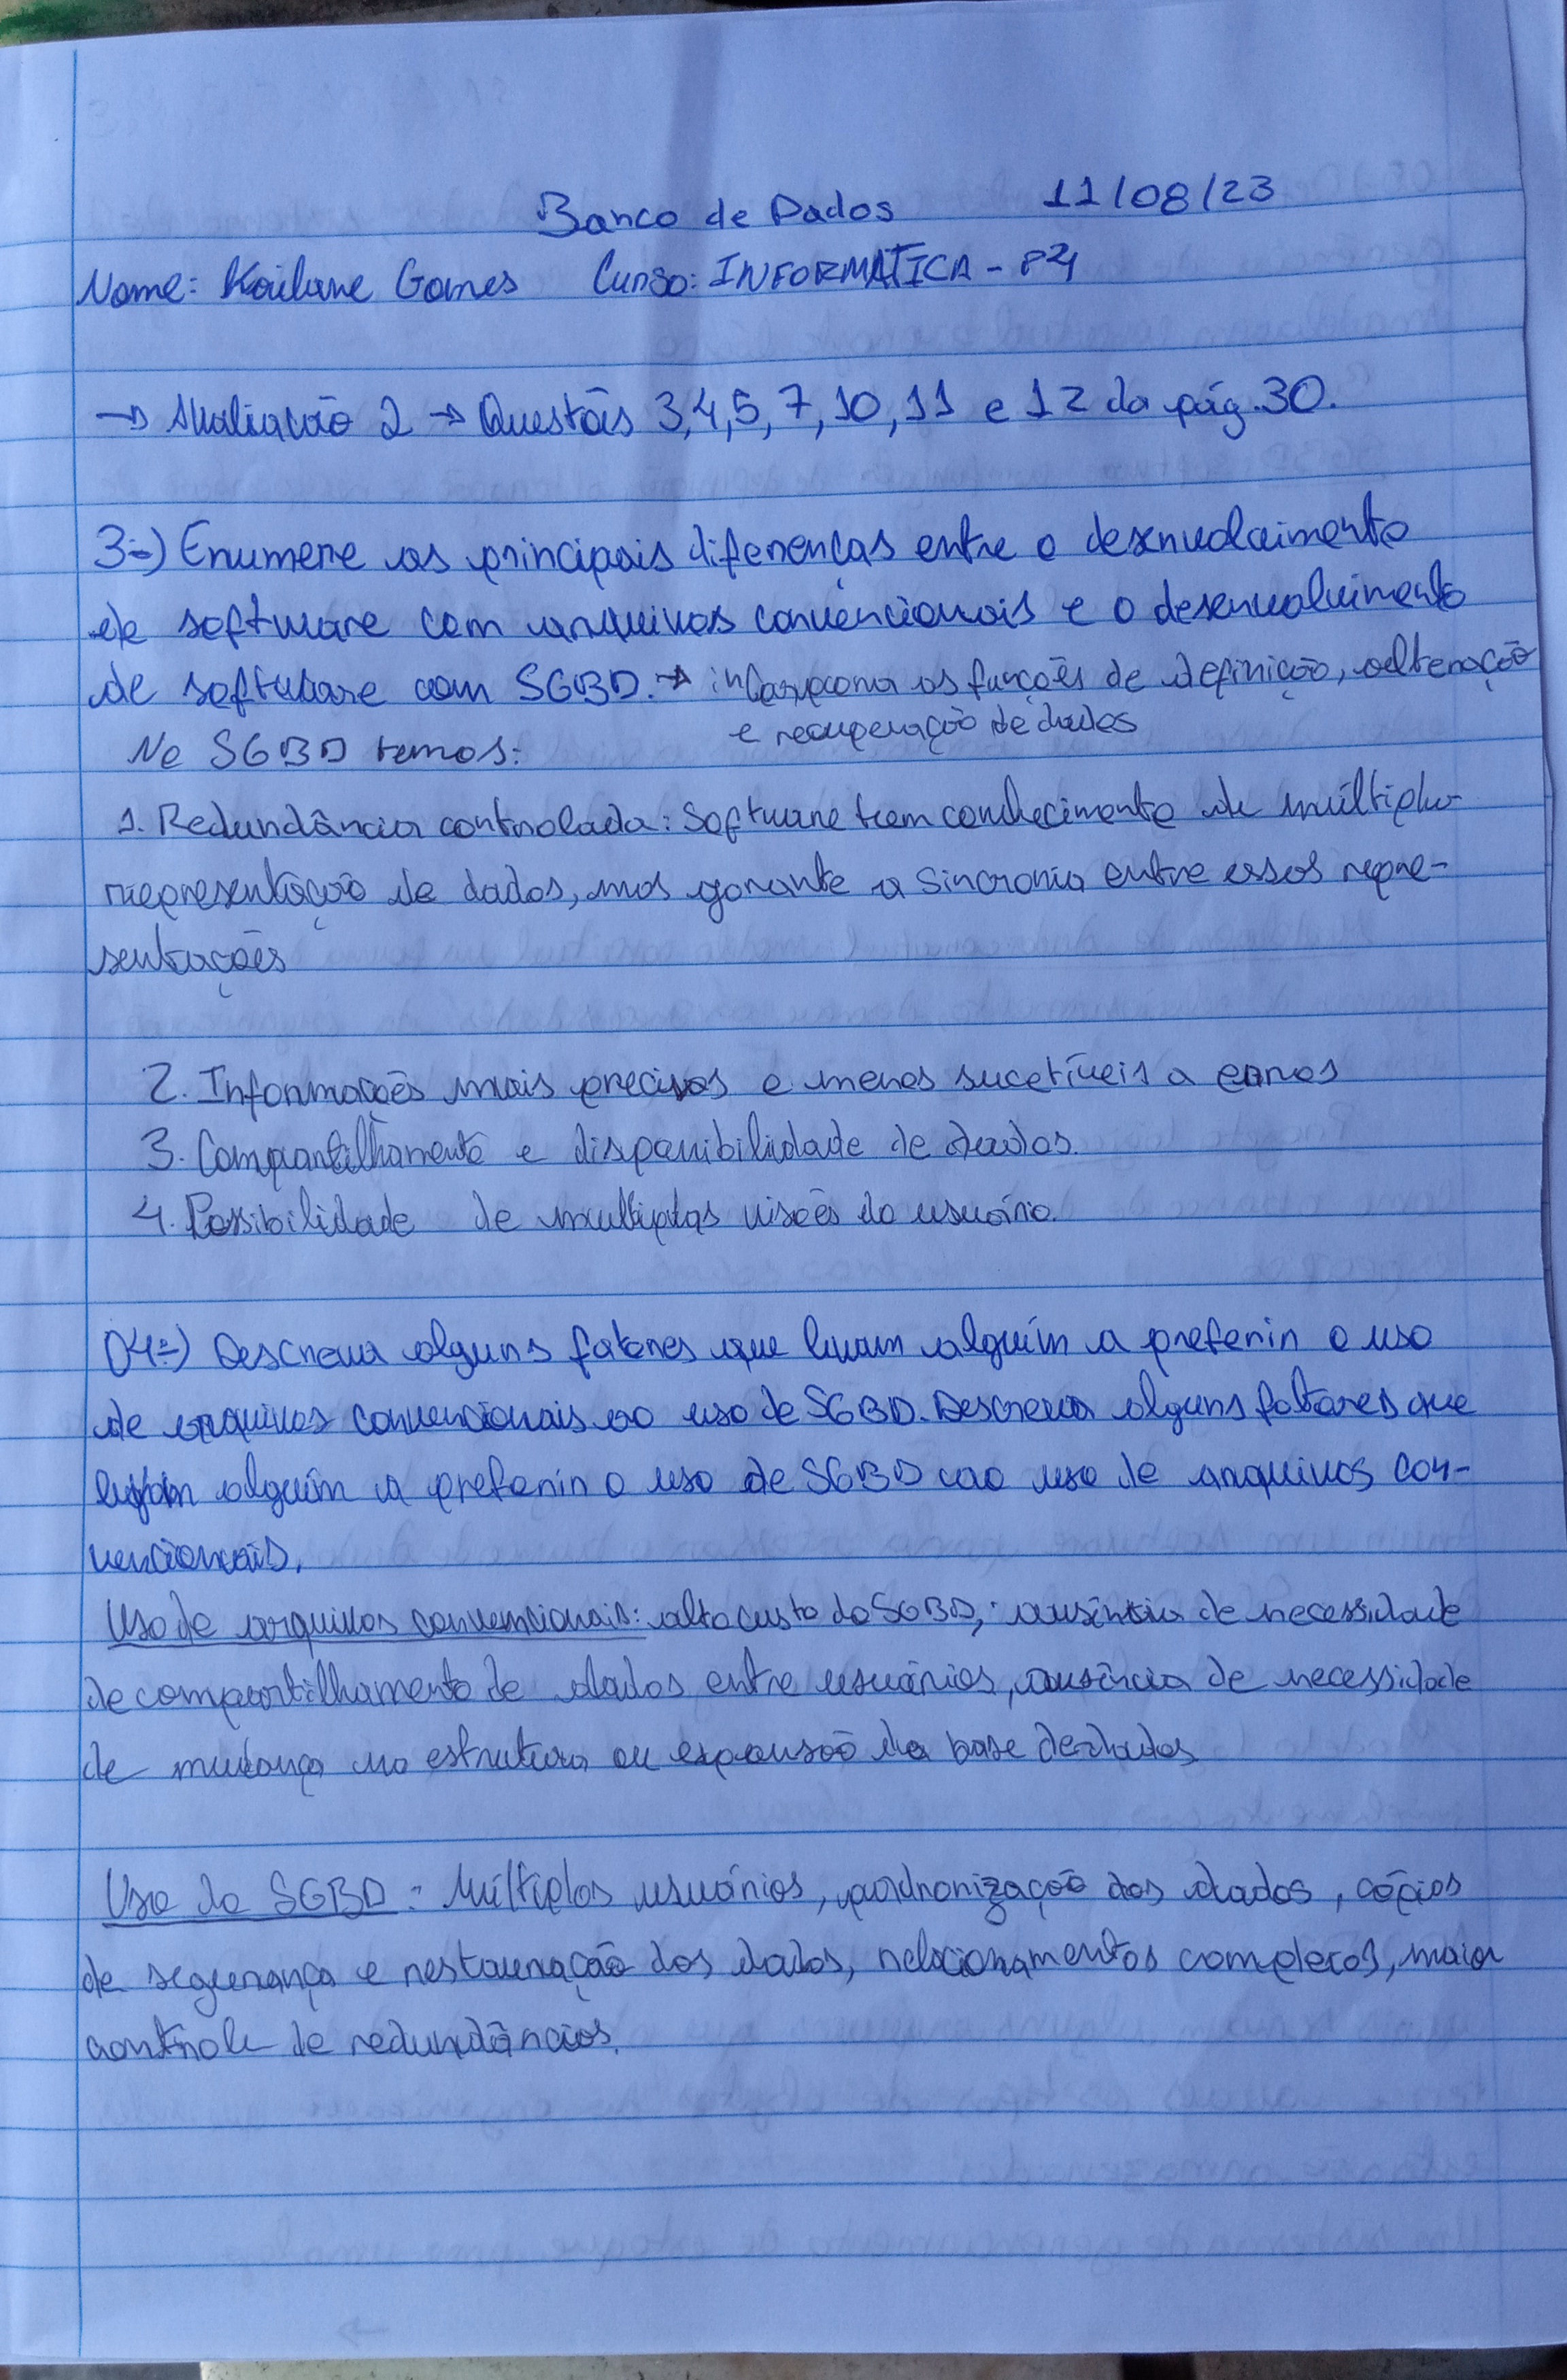 Banco de Dados 11/08/23
Nome: Kailane Gomes Curso: INFORMATICA - P4
→ Avaliação 2 → Questões 3,4,5,7,10,11 e 12 da pág.30.
3-) Enumere as principais diferenças entre o desenvolvimento
de software com arquivos convencionais e o desenvolvimento
de software com SGBD. → incorpora as funções de definição, alteração
e recuperação de dados
No SGBD temos:
1. Redundância controlada: Software tem conhecimento de múltipla
representação de dados, mas garante a sincronia entre essas repre-
sentações
2. Informações mais precisas e menos sucetíveis a erros
3. Compartilhamento e disponibilidade de dados.
4. Possibilidade de multiplas visões do usuário.
04-) Descreva alguns fatores que levam alguém a preferir o uso
de arquivos convencionais ao uso de SGBD. Descreva alguns fatores que
levam alguém a preferir o uso de SGBD ao uso de arquivos con-
vencionais.
Uso de arquivos convencionais: alto custo do SGBD, ausência de necessidade
de compartilhamento de dados entre usuários, ausência de necessidade
de mudança na estrutura ou expansão da base de dados
Uso do SGBD: Múltiplos usuários, padronização dos dados, cópias
de segurança e restauração dos dados, relacionamentos complexos, maior
controle de redundâncias.